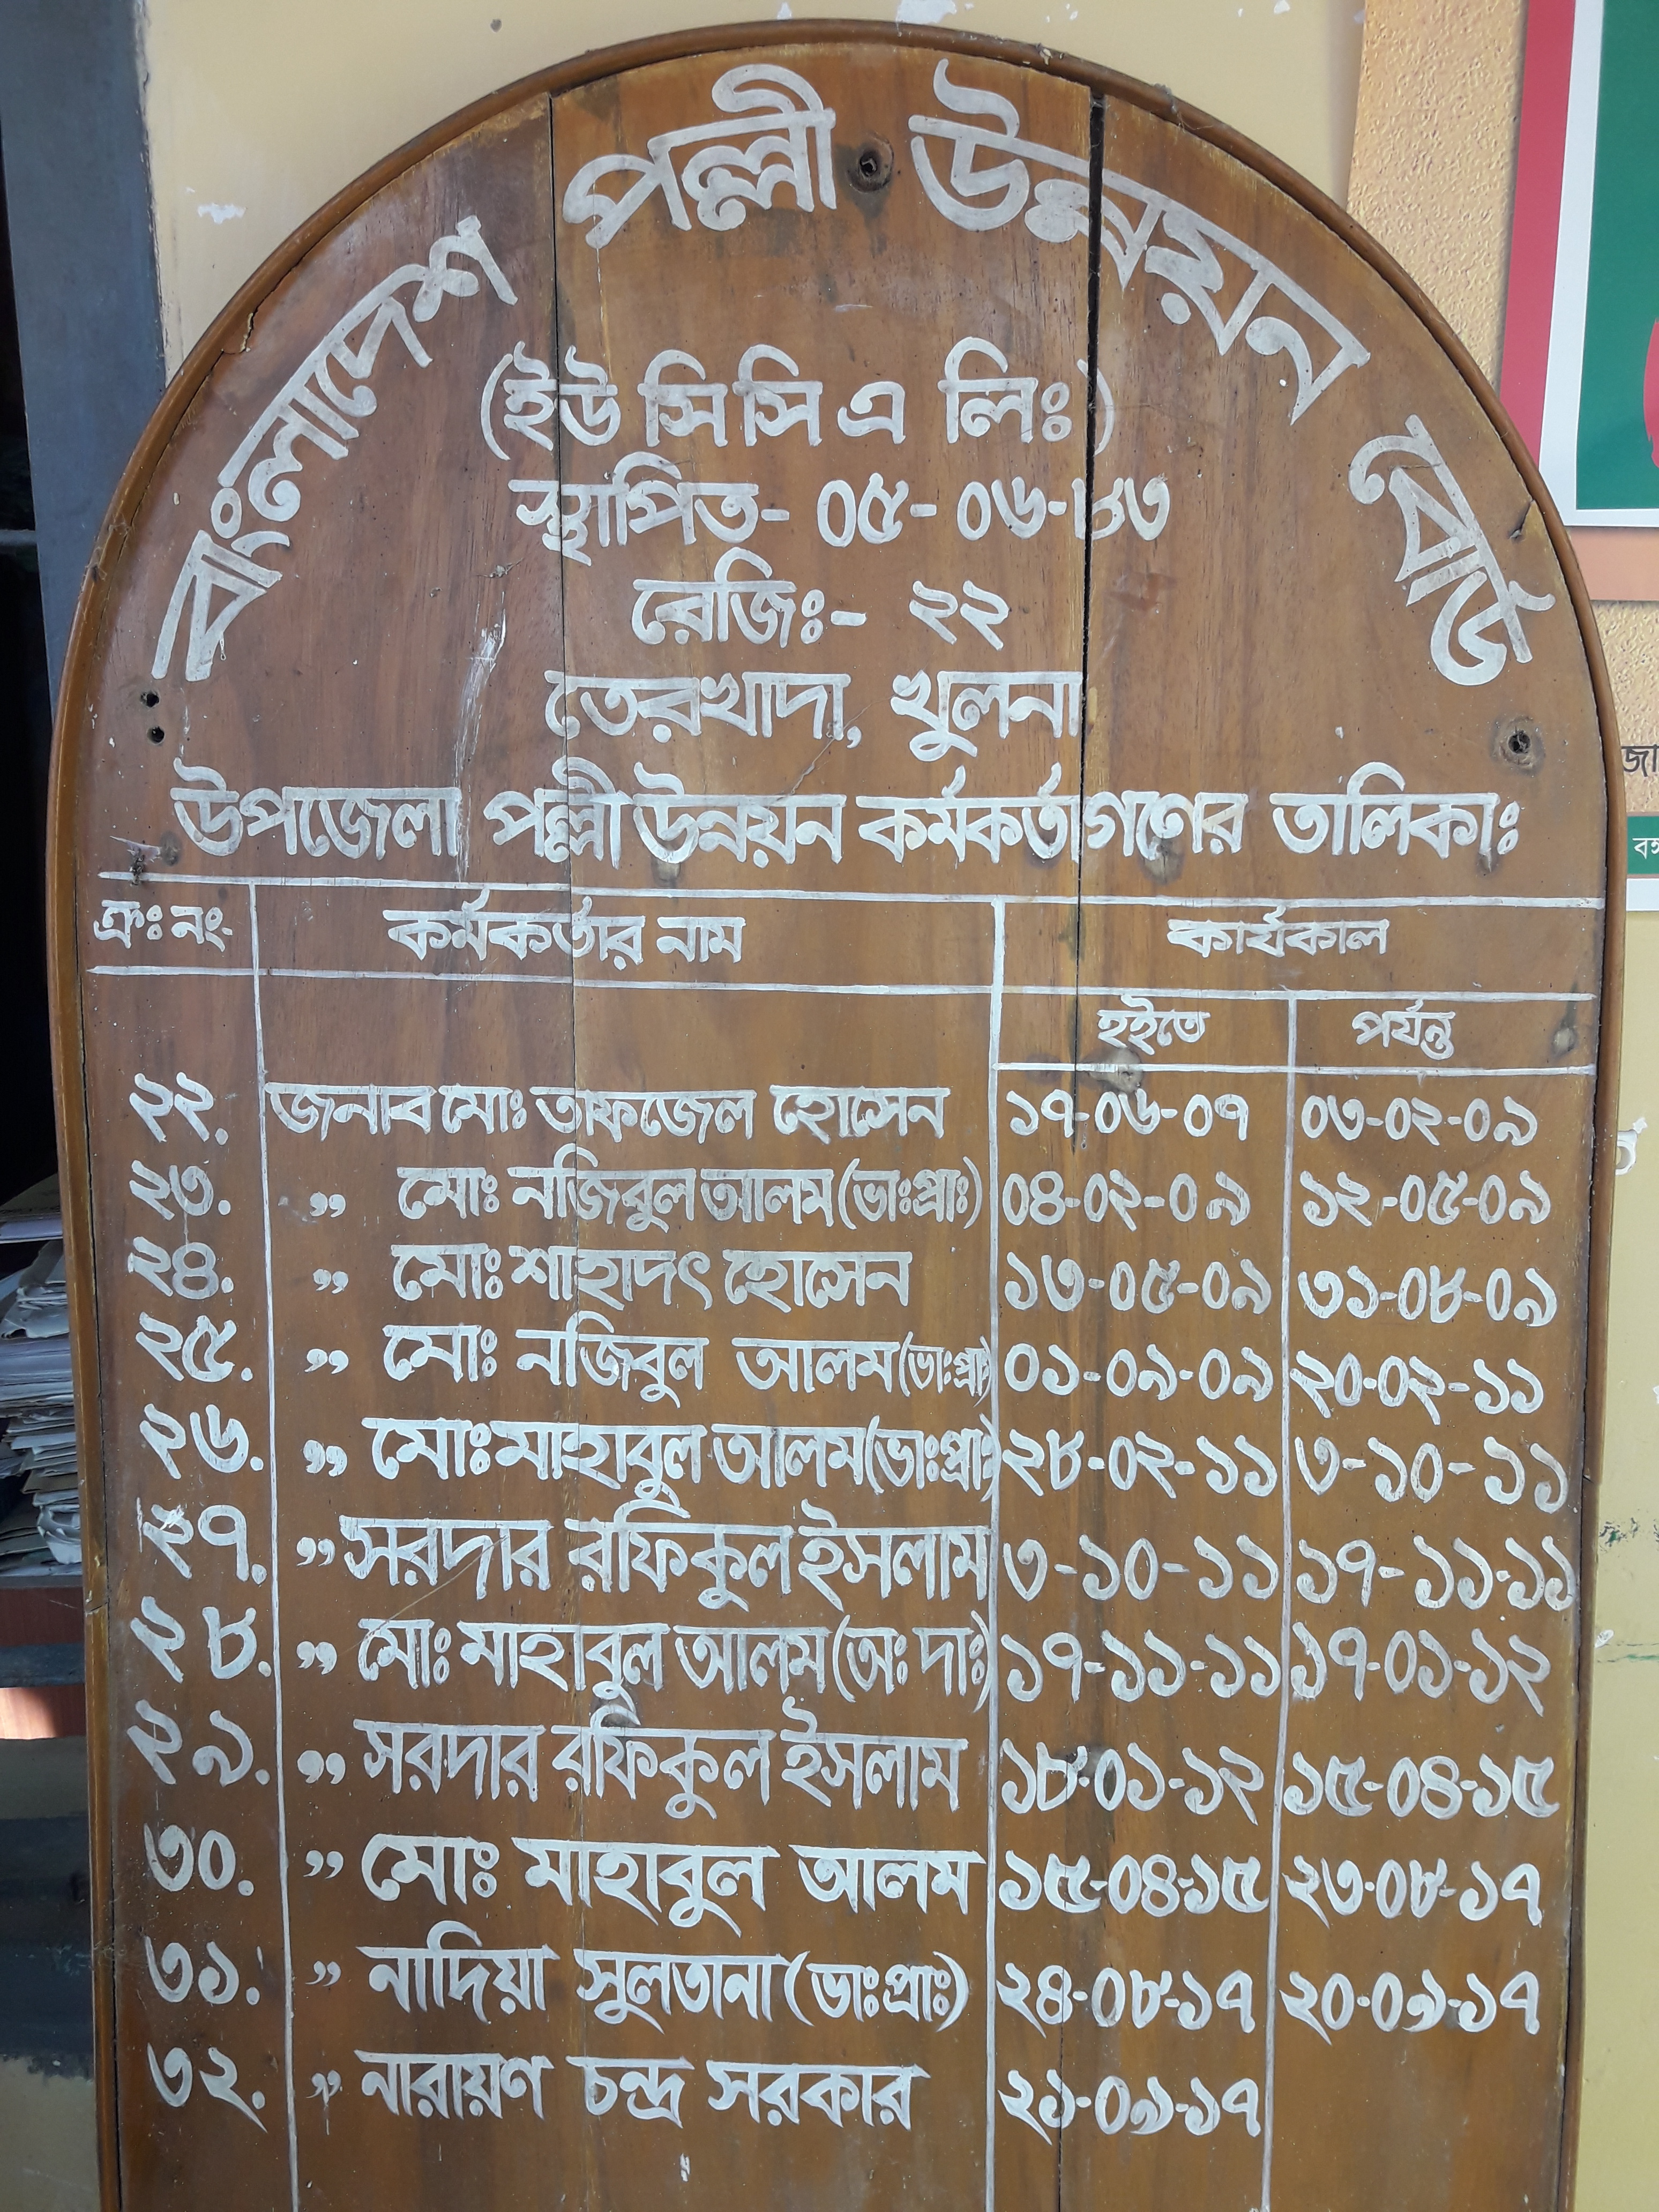 বাংলাদেশ পল্লী উন্নয়ন বোর্ড
(ইউ সি সি এ লিঃ)
স্থাপিত- ০৫-০৬-৮৩
রেজিঃ- ২২
তেরখাদা, খুলনা
উপজেলা পল্লী উন্নয়ন কর্মকর্তাগণের তালিকাঃ
ক্রঃ নং. কর্মকর্তার নাম কার্যকাল
হইতে পর্যন্ত
২২. জনাব মোঃ তাফজেল হোসেন ১৭-০৬-০৭ ০৩-০২-০৯
২৩. ,, মোঃ নজিবুল আলম (ভাঃপ্রাঃ) ০৪-০২-০৯ ১২-০৫-০৯
২৪. ,, মোঃ শাহাদৎ হোসেন ১৩-০৫-০৯ ৩১-০৮-০৯
২৫. ,, মোঃ নজিবুল আলম (ভাঃপ্রাঃ) ০১-০৯-০৯ ২০-০২-১১
২৬. ,, মোঃ মাহাবুল আলম (ভাঃপ্রাঃ) ২৮-০২-১১ ৩-১০-১১
২৭. ,, সরদার রফিকুল ইসলাম ৩-১০-১১ ১৭-১১-১১
২৮. ,, মোঃ মাহাবুল আলম (অঃ দাঃ) ১৭-১১-১১ ১৭-০১-১২
২৯. ,, সরদার রফিকুল ইসলাম ১৮-০১-১২ ১৫-০৪-১৫
৩০. ,, মোঃ মাহাবুল আলম ১৫-০৪-১৫ ২৩-০৮-১৭
৩১. ,, নাদিয়া সুলতানা (ভাঃপ্রাঃ) ২৪-০৮-১৭ ২০-০৯-১৭
৩২. ,, নারায়ণ চন্দ্র সরকার ২১-০৯-১৭